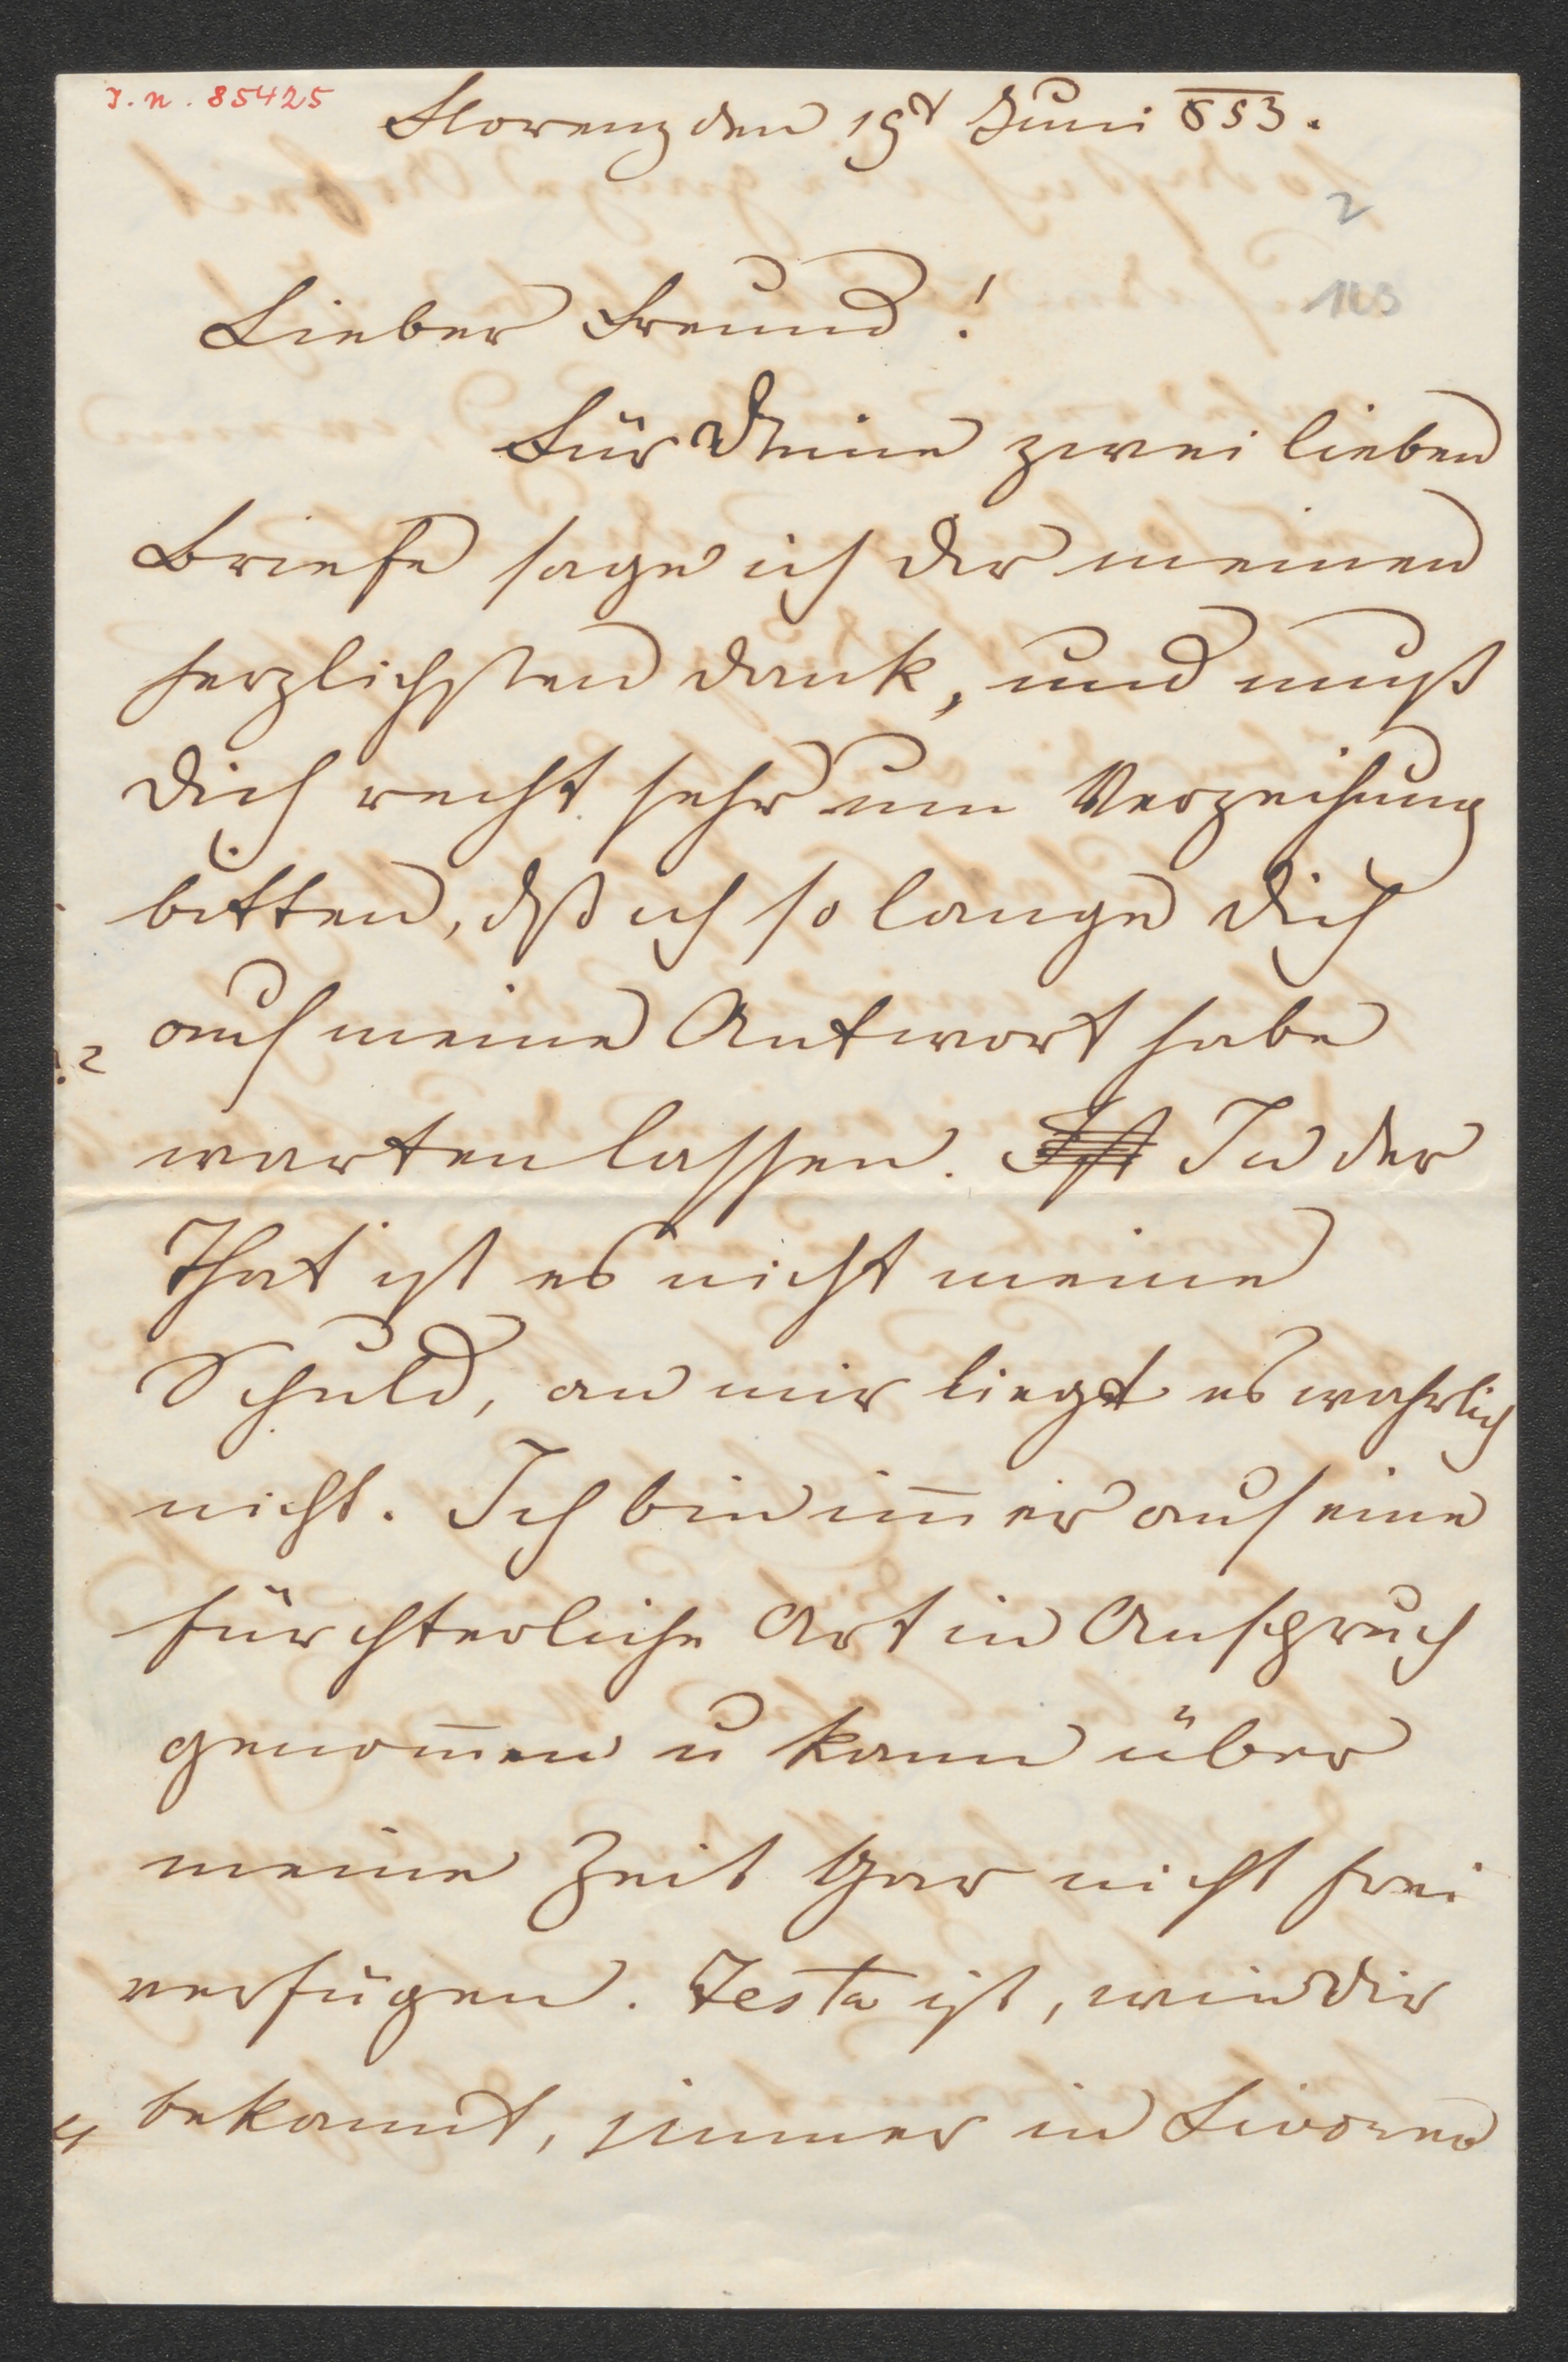 I. N. 85425
Florenz den 19t Juni 853.
2
Lieber Freund!
Für Deine zwei lieben
Briefe sage ich Dir meinen
herzlichsten Dank, und muß
Dich recht sehr um Verzeihung
bitten, dß ich so lange Dich
auf meine Antwort habe
warten lassen. Ist In der
That ist es nicht meine
Schuld, an mir liegt es wahrlich
nicht. Ich bin im̅er auf eine
fürchterliche Art in Anspruch
genom̅en u kann über
meine Zeit gar nicht frei
verfügen. Testa ist, wie Dir
bekannt, immer in Livorno